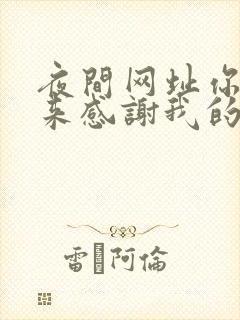 夜間网址你
来感謝我的
雷 阿倫